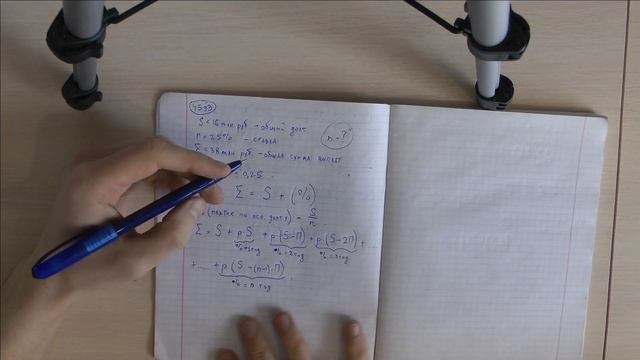 4593
S = 16 млн руб – общий долг
n - ?
П = 25% – ставка
Σ = 38 млн руб. – общая сумма выплат
= 0,25
Σ = S + (%)
(платёж по осн. долгу) = S/n
Σ = S + pS + p(S-П) + p(S-2П) +
% 1 год % 2 год % 3 год
+ ... + p(S-(n-1)·П)
% n год